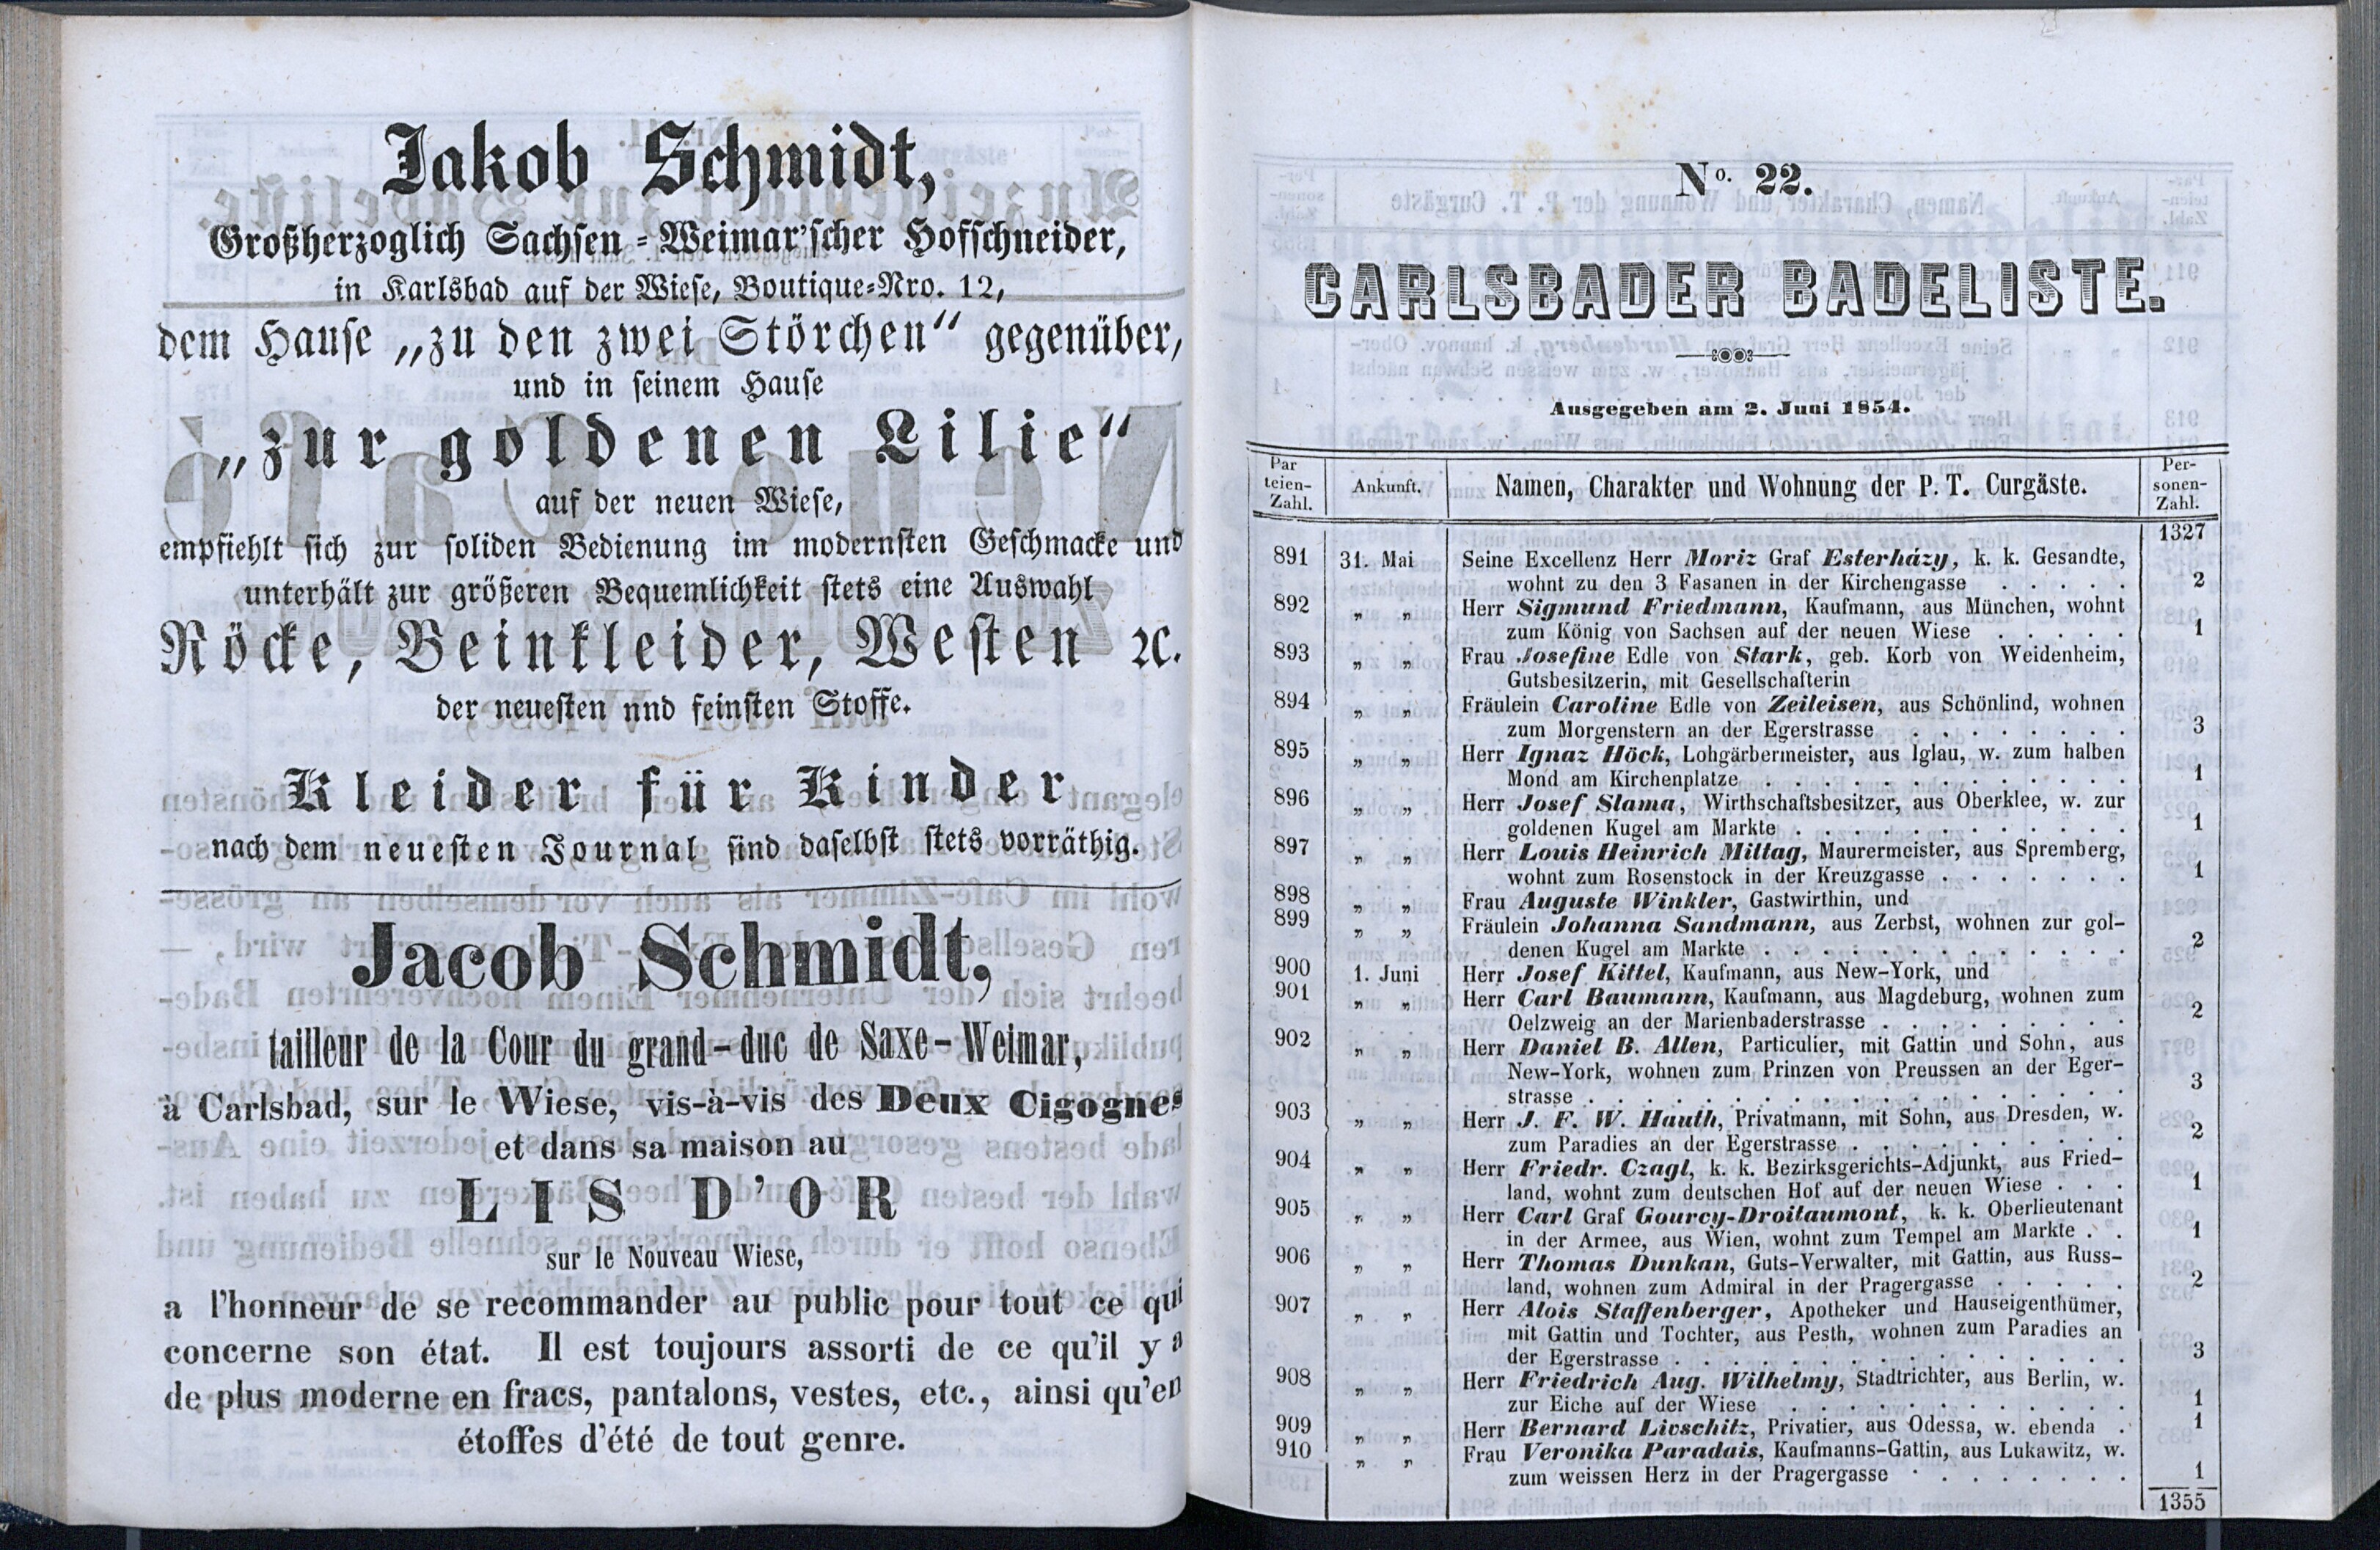 Jakob Schmidt,
Großherzoglich Sachsen-Weimar'scher Hofschneider,
in Karlsbad auf der Wiese, Boutique-Nro. 12,
dem Hause „zu den zwei Störchen“ gegenüber,
und in seinem Hause
„zur goldenen Lilie“
auf der neuen Wiese,
empfiehlt sich zur soliden Bedienung im modernsten Geschmacke und
unterhält zur größeren Bequemlichkeit stets eine Auswahl
Röcke, Beinkleider, Westen ꝛc.
der neuesten nnd feinsten Stoffe.
Kleider für Kinder
nach dem neuesten Journal sind daselbst stets vorräthig.
Jacob Schmidt,
tailleur de la Cour du grand-duc de Saxe-Weimar,
à Carlsbad, sur le Wiese, vis-à-vis des Deux Cigognes
et dans sa maison au
LIS D'OR
sur le Nouveau Wiese,
a l'honneur de se recommander au public pour tout ce qui
concerne son état. Il est toujours assorti de ce qu'il y a
de plus moderne en fracs, pantalons, vestes, etc., ainsi qu'en
étoffes d'été de tout genre.
No. 22.
CARLSBADER BADELISTE.
Ausgegeben am 2. Juni 1854.
Par teien- Zahl. Ankunft. Namen, Charakter und Wohnung der P. T. Curgäste. Per- sonen- Zahl.
1327
891 31. Mai Seine Excellenz Herr Moriz Graf Esterházy, k. k. Gesandte,
wohnt zu den 3 Fasanen in der Kirchengasse . . . . . 2
892 „ „ Herr Sigmund Friedmann, Kaufmann, aus München, wohnt
zum König von Sachsen auf der neuen Wiese . . . . . 1
893 „ „ Frau Josefine Edle von Stark, geb. Korb von Weidenheim,
Gutsbesitzerin, mit Gesellschafterin
894 „ „ Fräulein Caroline Edle von Zeileisen, aus Schönlind, wohnen
zum Morgenstern an der Egerstrasse . . . . . . . 3
895 „ „ Herr Ignaz Höck, Lohgärbermeister, aus Iglau, w. zum halben
Mond am Kirchenplatze . . . . . . . . . . . 1
896 „ „ Herr Josef Slama, Wirthschaftsbesitzer, aus Oberklee, w. zur
goldenen Kugel am Markte . . . . . . . . . . 1
897 „ „ Herr Louis Heinrich Mittag, Maurermeister, aus Spremberg,
wohnt zum Rosenstock in der Kreuzgasse . . . . . . . 1
898 „ „ Frau Auguste Winkler, Gastwirthin, und
899 „ „ Fräulein Johanna Sandmann, aus Zerbst, wohnen zur gol-
denen Kugel am Markte . . . . . . . . . . . 2
900 1. Juni Herr Josef Kittel, Kaufmann, aus New-York, und
901 „ „ Herr Carl Baumann, Kaufmann, aus Magdeburg, wohnen zum
Oelzweig an der Marienbaderstrasse . . . . . . . . 2
902 „ „ Herr Daniel B. Allen, Particulier, mit Gattin und Sohn, aus
New-York, wohnen zum Prinzen von Preussen an der Eger-
strasse . . . . . . . . . . . . . . . . 3
903 „ „ Herr J. F. W. Hauth, Privatmann, mit Sohn, aus Dresden, w.
zum Paradies an der Egerstrasse . . . . . . . . . 2
904 „ „ Herr Friedr. Czagl, k. k. Bezirksgerichts-Adjunkt, aus Fried-
land, wohnt zum deutschen Hof auf der neuen Wiese . . . 1
905 „ „ Herr Carl Graf Gourcy-Droitaumont, k. k. Oberlieutenant
in der Armee, aus Wien, wohnt zum Tempel am Markte . . 1
906 „ „ Herr Thomas Dunkan, Guts-Verwalter, mit Gattin, aus Russ-
land, wohnen zum Admiral in der Pragergasse . . . . . 2
907 „ „ Herr Alois Staffenberger, Apotheker und Hauseigenthümer,
mit Gattin und Tochter, aus Pesth, wohnen zum Paradies an
der Egerstrasse . . . . . . . . . . . . . 3
908 „ „ Herr Friedrich Aug. Wilhelmy, Stadtrichter, aus Berlin, w.
zur Eiche auf der Wiese . . . . . . . . . . 1
909 „ „ Herr Bernard Livschitz, Privatier, aus Odessa, w. ebenda . 1
910 „ „ Frau Veronika Paradais, Kaufmanns-Gattin, aus Lukawitz, w.
zum weissen Herz in der Pragergasse . . . . . . . 1
1355